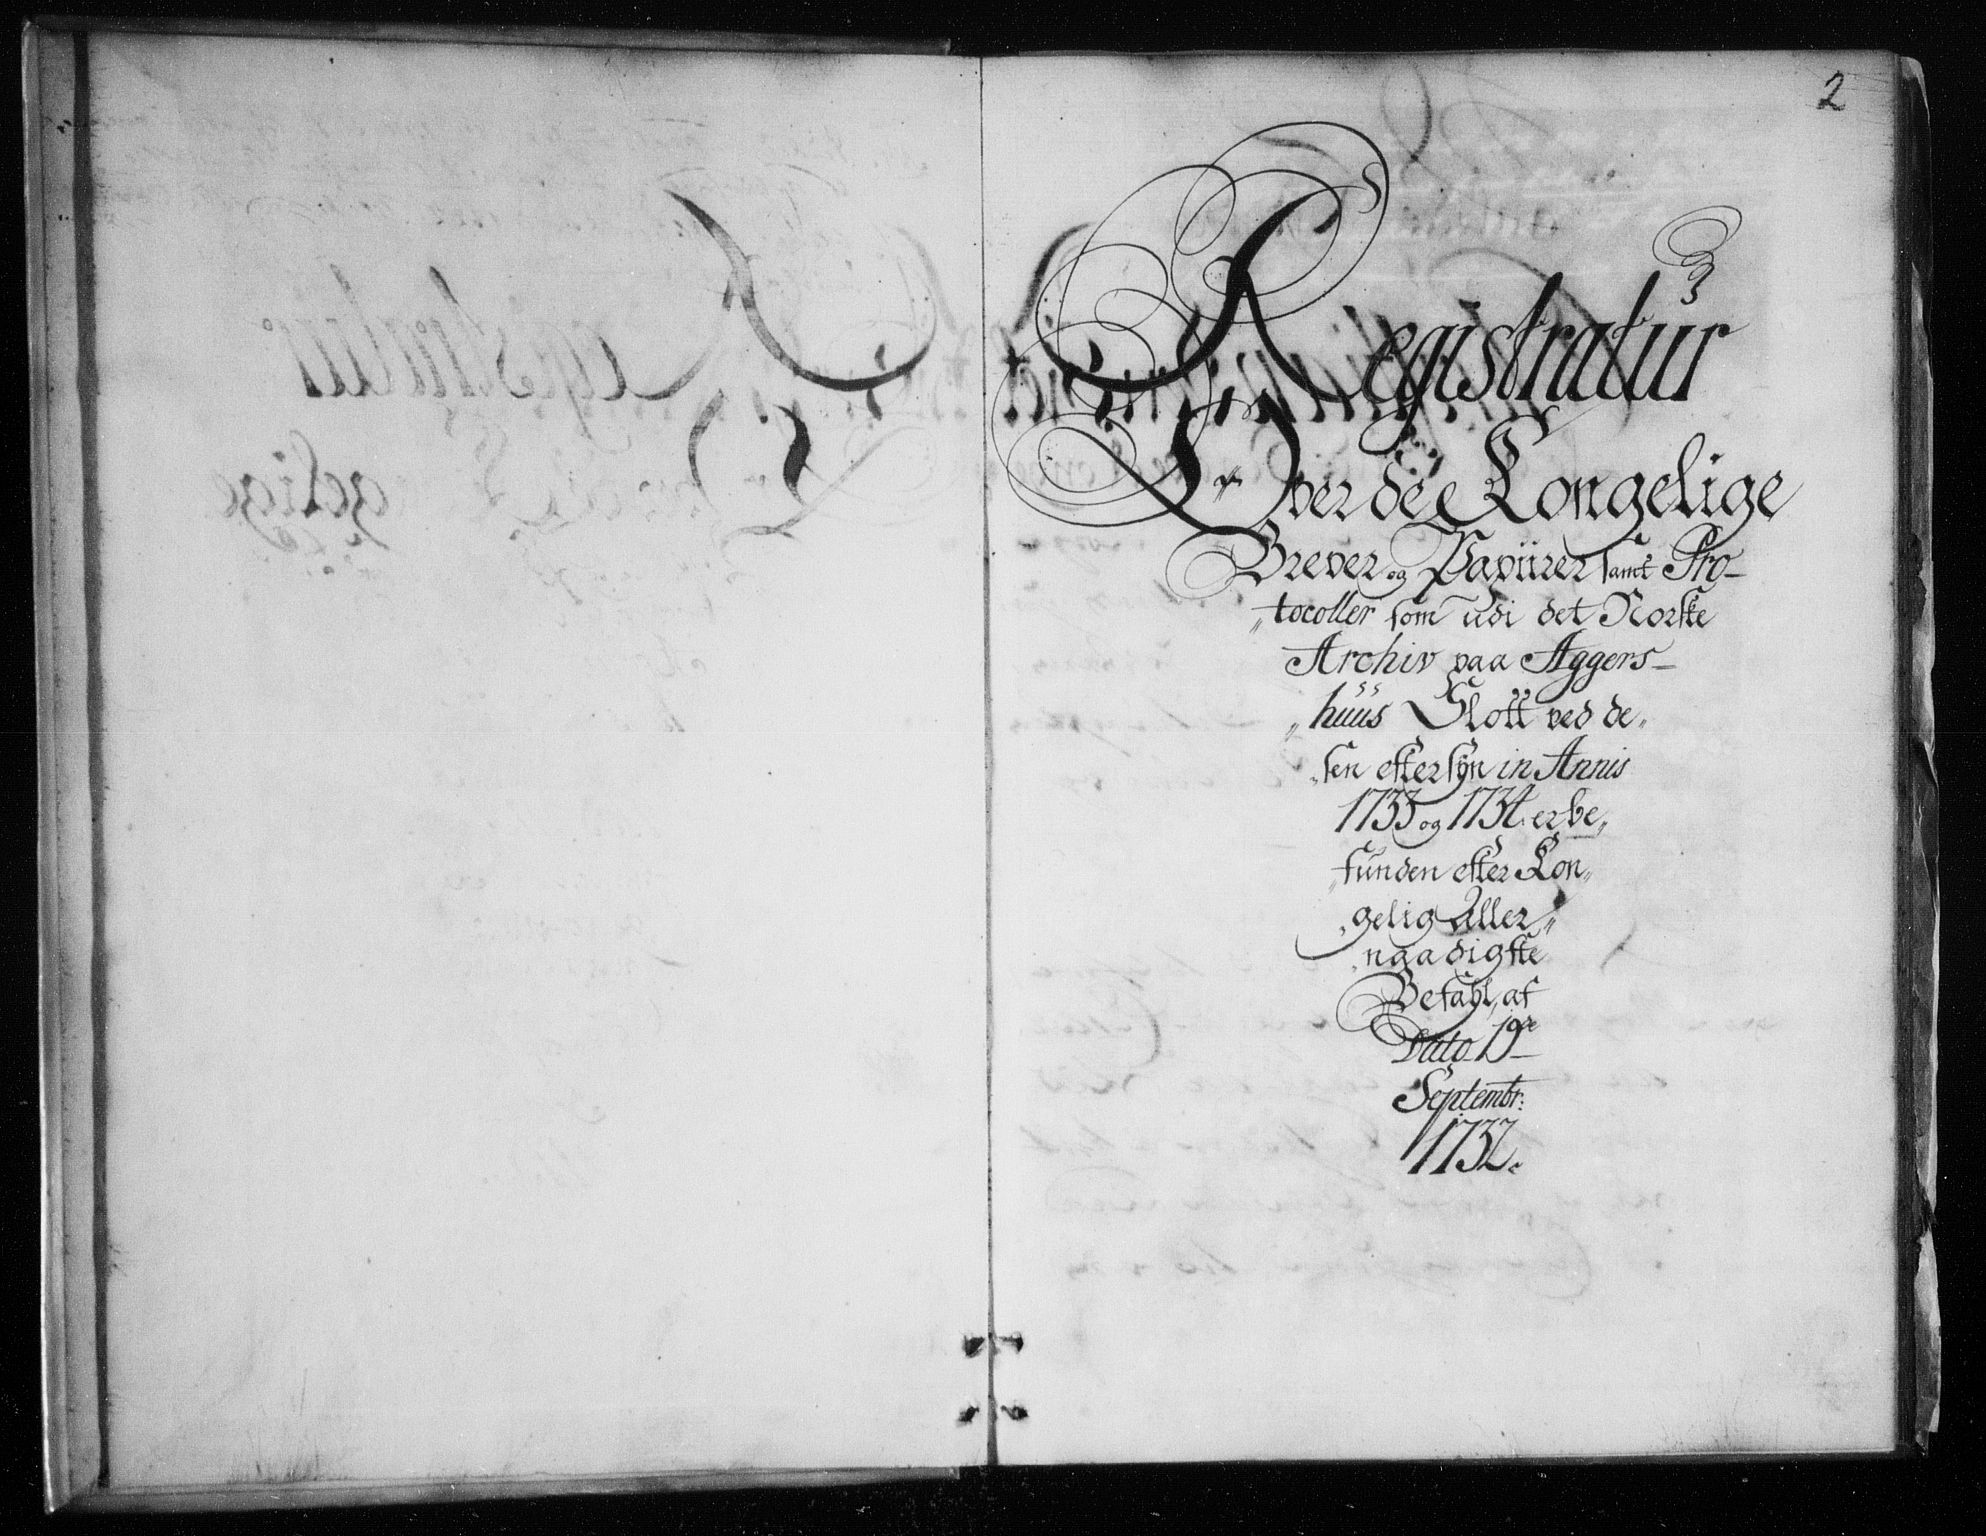 2
Registratur
Over de Kongelige
Brever og Papiirer samt Pro-
"tocoller som udi det Norske
Archiv paa Aggers-
"huus Slott ved de"
"sen eftersyn in Annis
1733 og 1734 er be"
"funden efter Kon"
"gelig Aller"
"naadigste
Befahl, af
Dato 19de
Septembr:
1732.